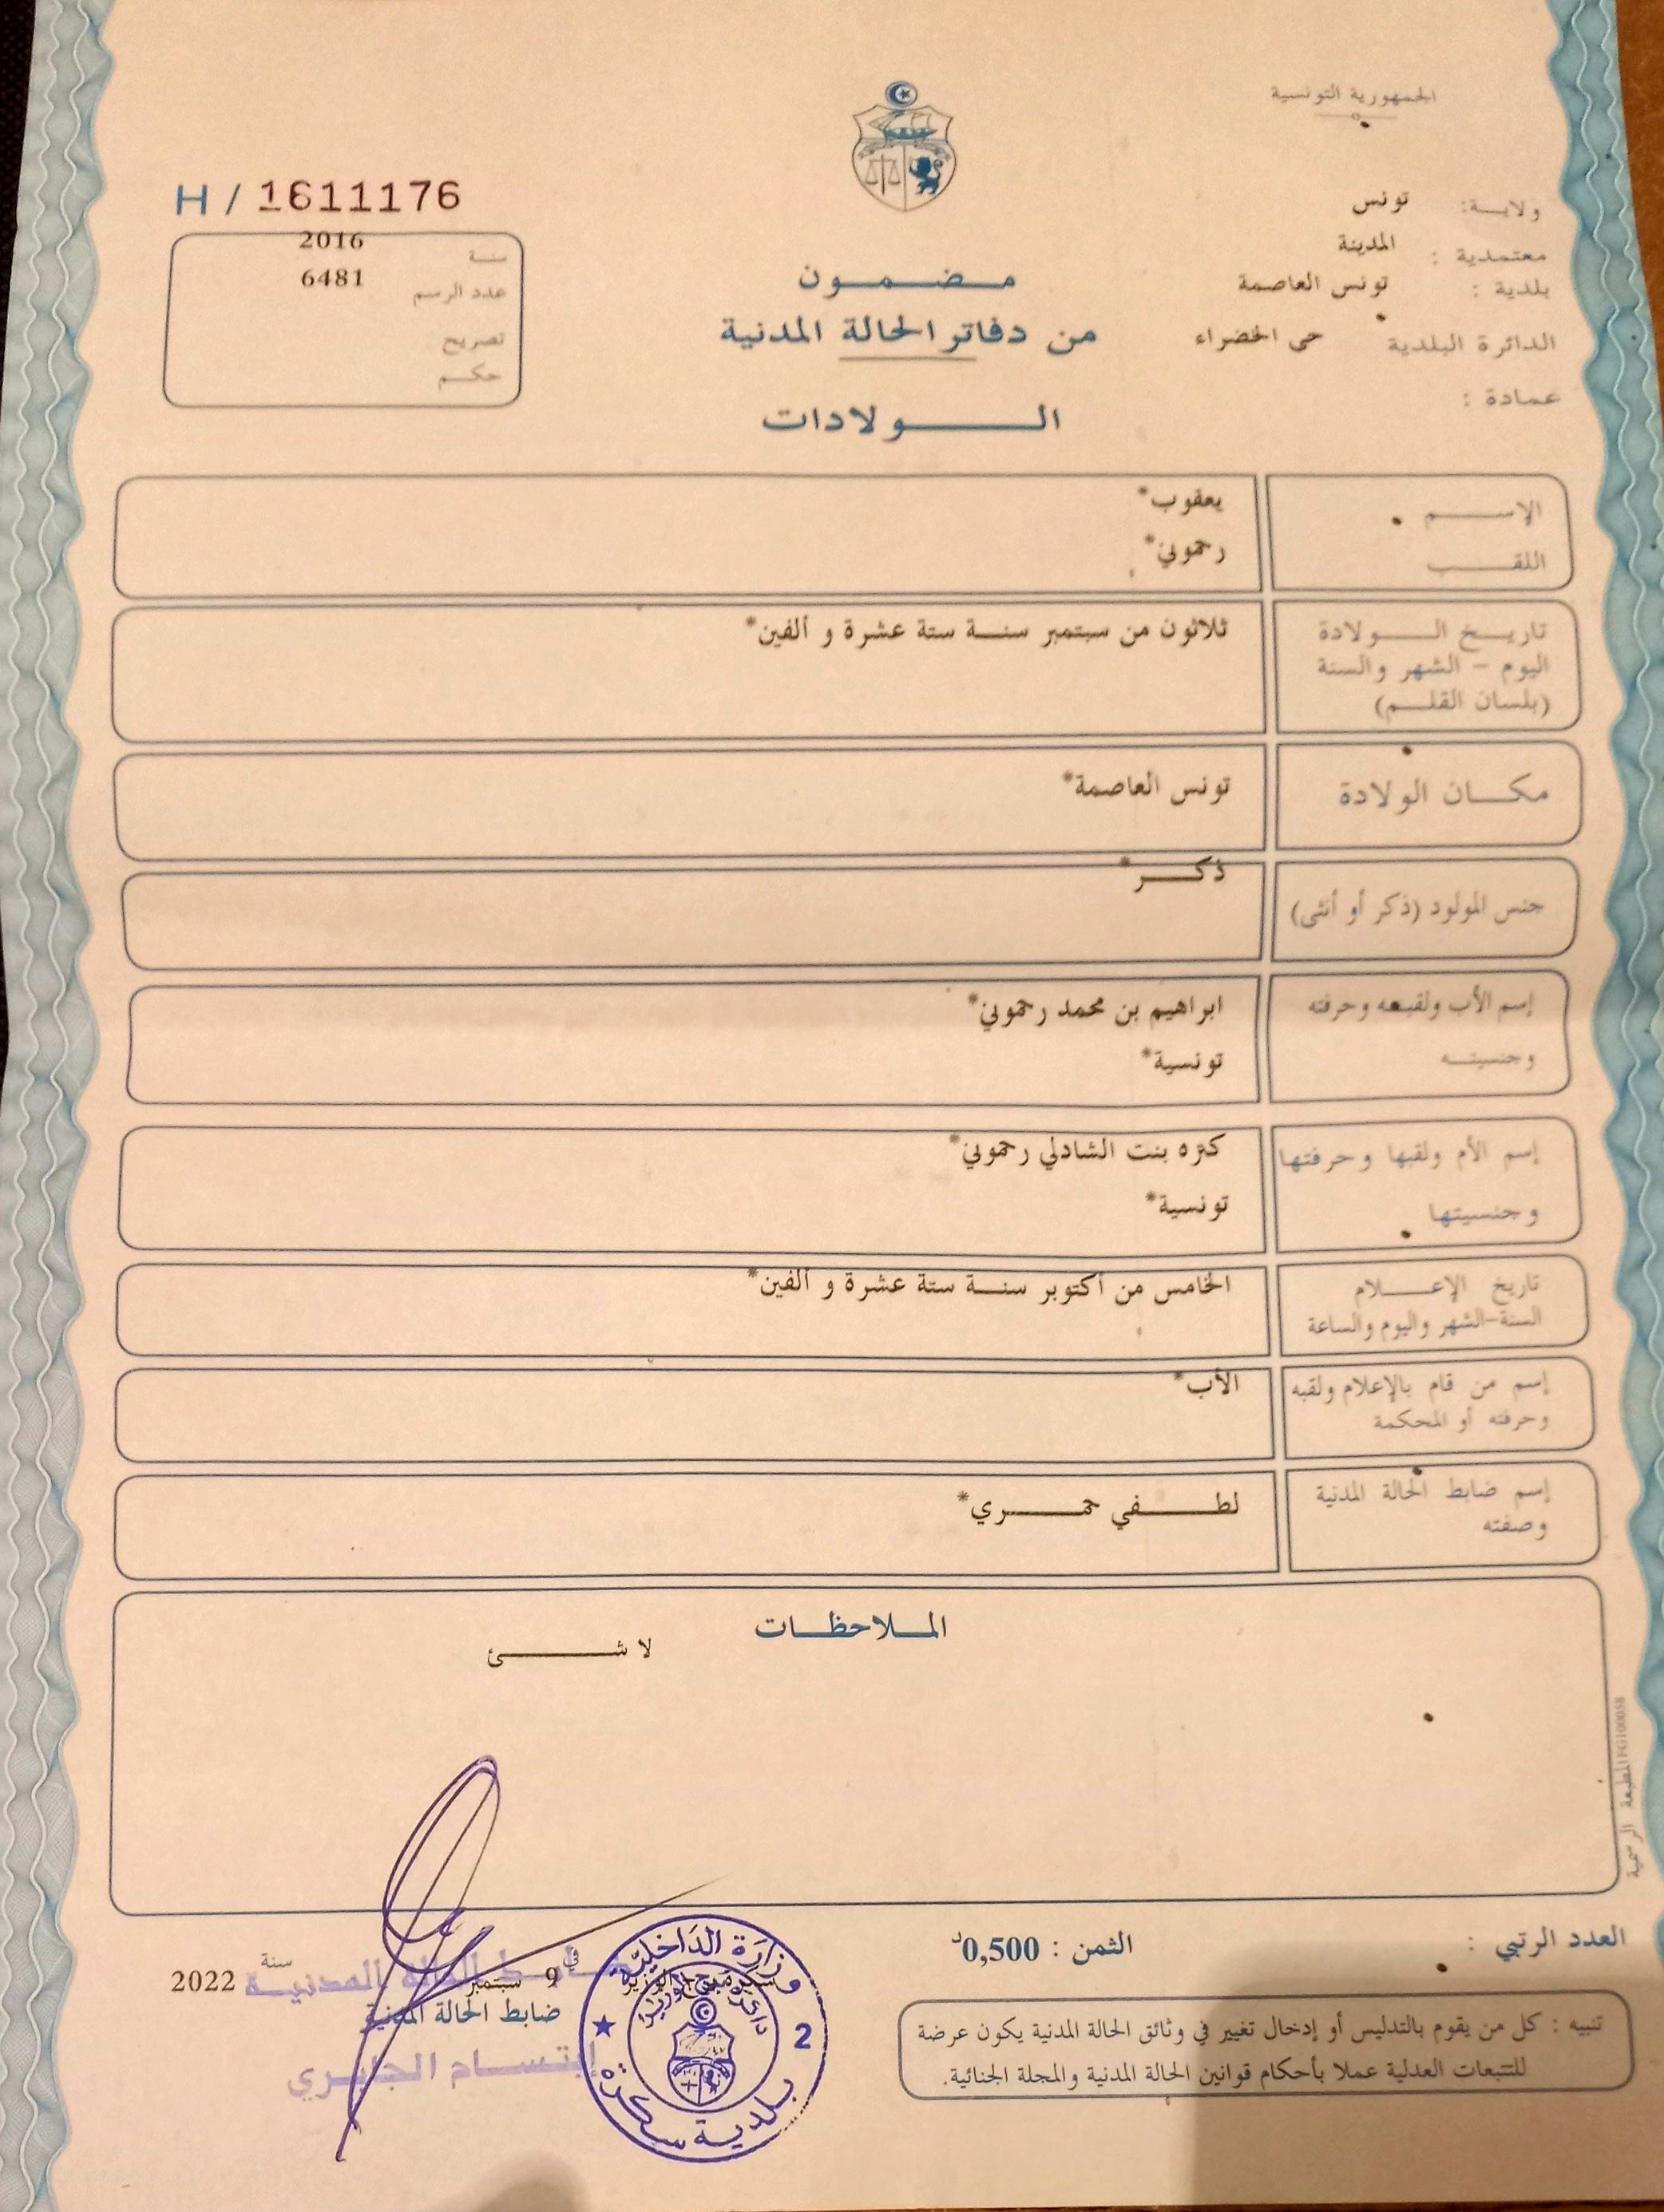 الجمهورية التونسية
ولايـة: تونس
معتمدية : المدينة
بلدية : تونس العاصمة
الدائرة البلدية حى الخضراء
عمادة :
H / 1611176
سنة 2016
عدد الرسم 6481
تصريح
حكم
مضمون
من دفاتر الحالة المدنية
الولادات
الإسم يعقوب*
اللقب رحموني*
تاريخ الولادة ثلاثون من سبتمبر سنة ستة عشرة و ألفين*
اليوم - الشهر والسنة
(بلسان القلم)
مكان الولادة تونس العاصمة*
جنس المولود (ذكر أو أنثى) ذكر*
إسم الأب ولقبه وحرفته ابراهيم بن محمد رحموني*
وجنسيته تونسية*
إسم الأم ولقبها وحرفتها بنت الشادلي رحموني*
وجنسيتها تونسية*
تاريخ الإعلام الخامس من أكتوبر سنة ستة عشرة و ألفين*
السنة-الشهر واليوم والساعة
إسم من قام بالإعلام ولقبه الأب*
وحرفته أو المحكمة
إسم ضابط الحالة المدنية لطفي حمري*
وصفته
الملاحظات
لا شئ
المطبعة الرسمية
العدد الرتبي :
الثمن : 0,500د
تنبيه : كل من يقوم بالتدليس أو إدخال تغيير في وثائق الحالة المدنية يكون عرضة
للتتبعات العدلية عملا بأحكام قوانين الحالة المدنية والمجلة الجنائية.
في 9 سبتمبر سنة 2022
ضابط الحالة المدنية
ضابط الحالة المدنية
إبتسام الجابري
وزارة الداخلية
2
بلدية سكرة